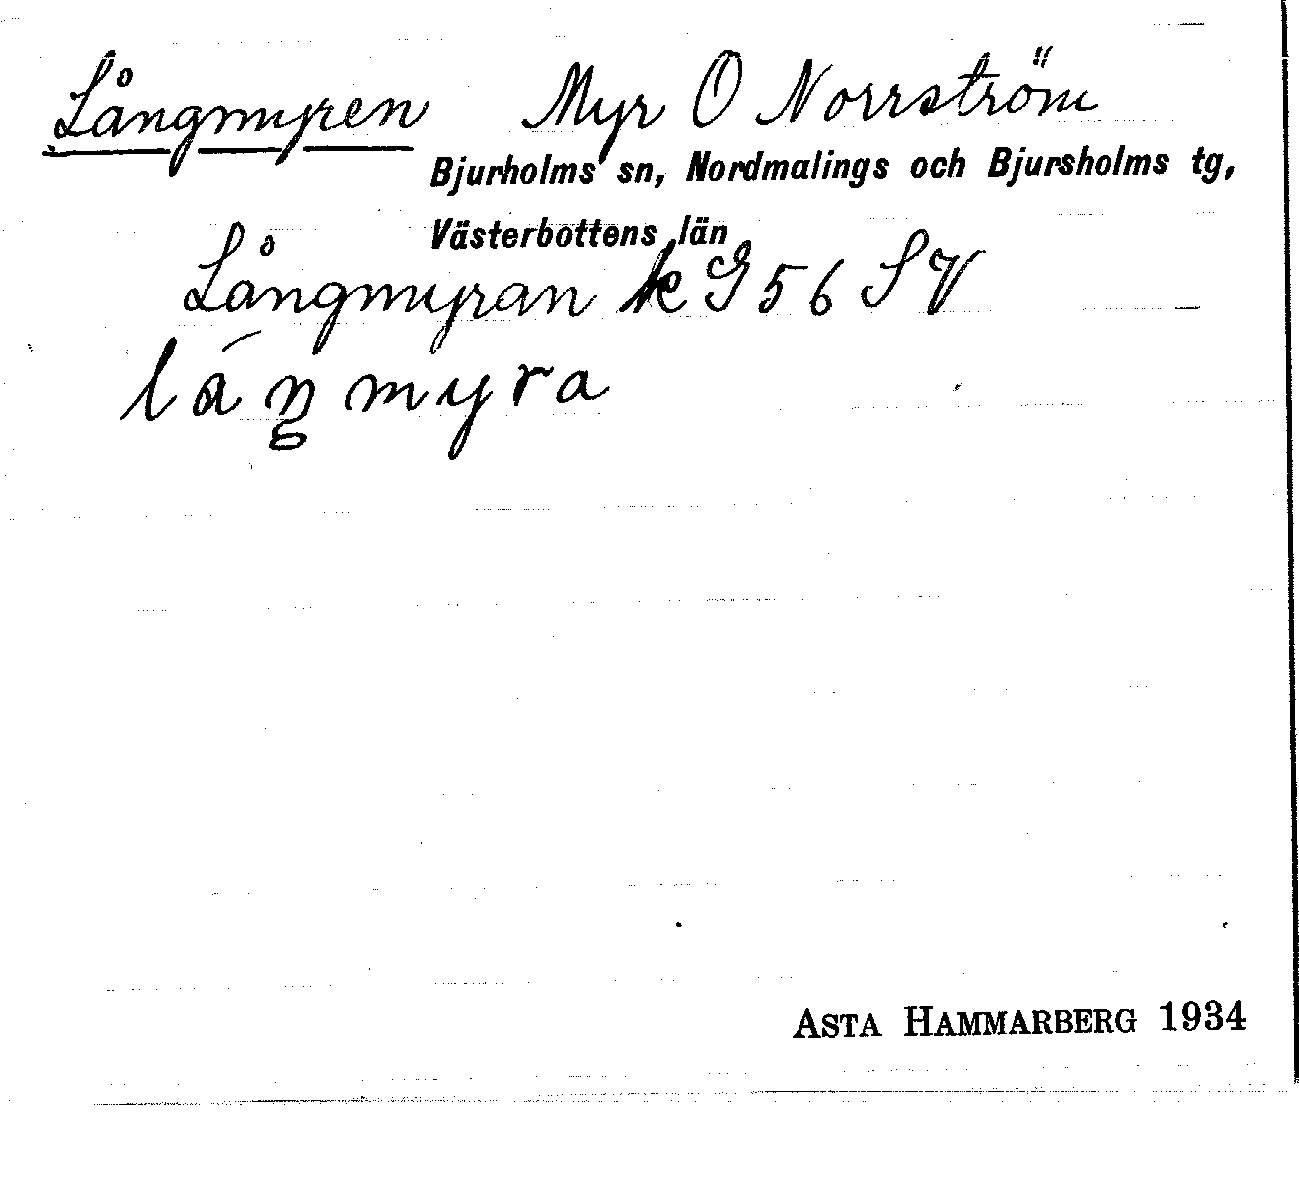 Långmyren Myr O Norrström
Bjurholms sn, Nordmalings och Bjursholms tg,
Västerbottens län
Långmyran k G 56 SV
láŋmyra
ASTA HAMMARBERG 1934